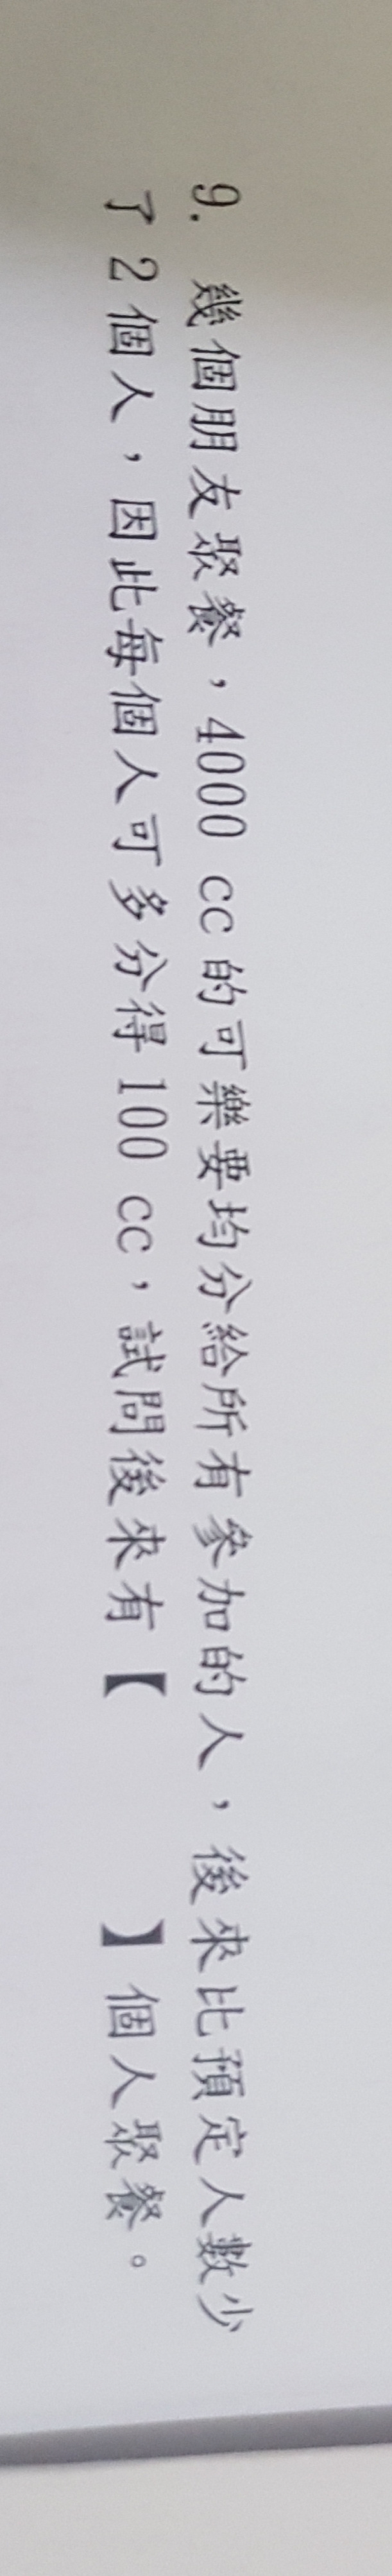 9. 幾個朋友聚餐，4000 cc 的可樂要均分給所有參加的人，後來比預定人數少
了 2 個人，因此每個人可多分得 100 cc，試問後來有【　　】個人聚餐。